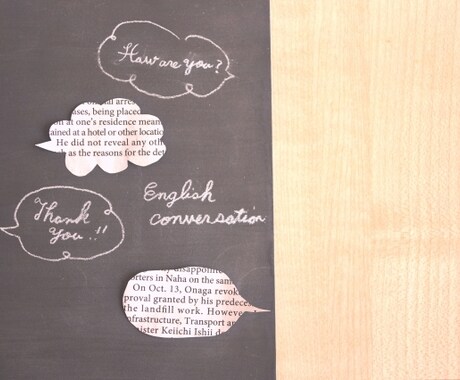 How are you?
onal arres
ases, being placed
n at one's residence mean
ained at a hotel or other locatio
He did not reveal any oth
as the reasons for the det
English
conversation
Thank
you!!
disappoint
rters in Naha on the sam
On Oct. 13, Onaga revok
proval granted by his predeces
the landfill work. However
nfrastructure, Transport an
ister Keiichi Ishii de